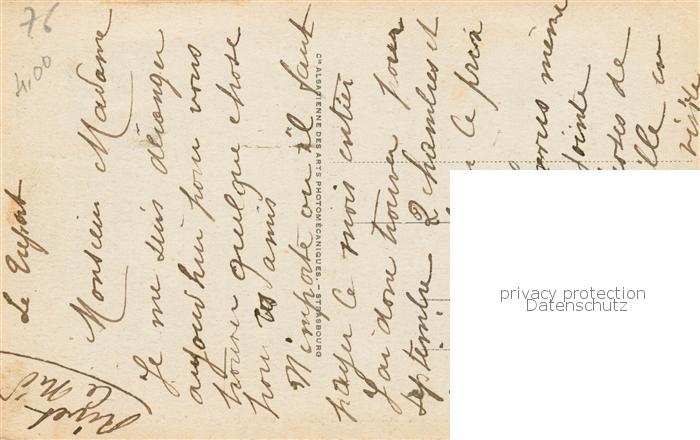 76
4.00
Monsieur Madame
Je me suis déranger
aujourd'hui pour vous
trouver quelque chose
pour vos amis
N'importe ou il faut
payer le mois entier
J'ai donc trouver pour
septembre 2 chambres et
le prix
vous même
jointe
de
en
Cie ALSACIENNE DES ARTS PHOTOMÉCANIQUES. – STRASBOURG
privacy protection
Datenschutz